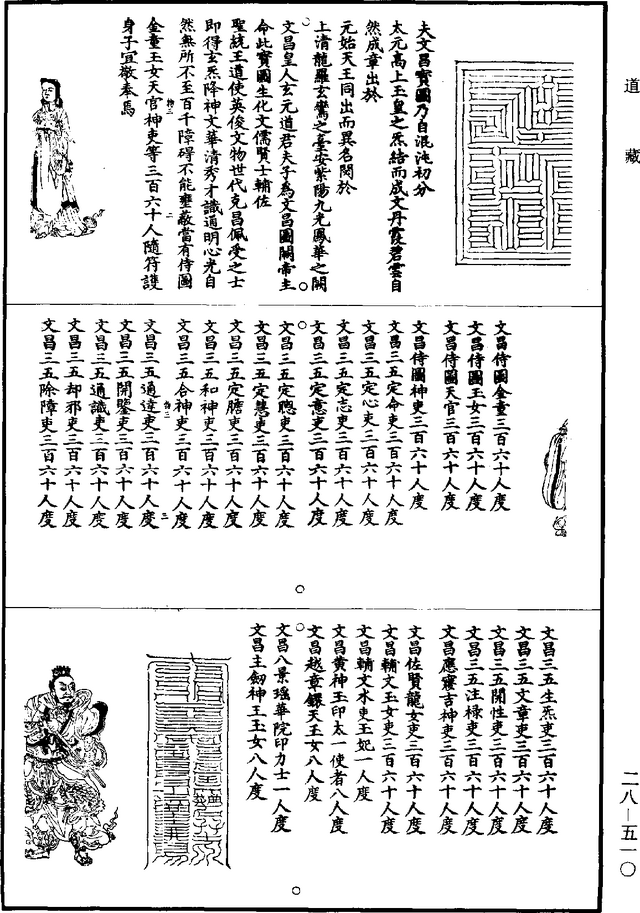 道藏
夫文昌寳圖乃自混沌初分
太元高上玉皇之炁結而成文丹霞碧雲自
然成章出於
元始天王同出而異名閟於
上清龍羅玄鸞之臺安紫陽九光鳳華之闕
文昌皇人玄元道君夫子為文昌圖開帝主
命此寳圖生化文儒賢士輔佐
聖統王道使英俊文物世代克昌佩受之士
即得玄炁降神文華清秀才識通明心光自
然無所不至百千障碍不能壅蔽當有侍圖
金童玉女天官神吏等三百六十人隨符護
身子宜敬奉焉
文昌侍圖金童三百六十人度
文昌侍圖玉女三百六十人度
文昌侍圖天官三百六十人度
文昌侍圖神吏三百六十人度
文昌三五定命吏三百六十人度
文昌三五定心吏三百六十人度
文昌三五定志吏三百六十人度
文昌三五定意吏三百六十人度
文昌三五定聰吏三百六十人度
文昌三五定慧吏三百六十人度
文昌三五定膽吏三百六十人度
文昌三五和神吏三百六十人度
文昌三五合神吏三百六十人度
文昌三五通達吏三百六十人度
文昌三五開鑒吏三百六十人度
文昌三五通識吏三百六十人度
文昌三五却邪吏三百六十人度
文昌三五除障吏三百六十人度
文昌三五生炁吏三百六十人度
文昌三五文章吏三百六十人度
文昌三五開性吏三百六十人度
文昌三五注禄吏三百六十人度
文昌應夢吉神吏三百六十人度
文昌佐賢龍女吏三百六十人度
文昌輔文玉女吏三百六十人度
文昌輔文水吏王妃一人度
文昌黄神玉印太一使者八人度
文昌越章鐶天玉女八人度
文昌八景瑶華院印力士一人度
文昌主劒神王玉女八人度
二八—五一〇